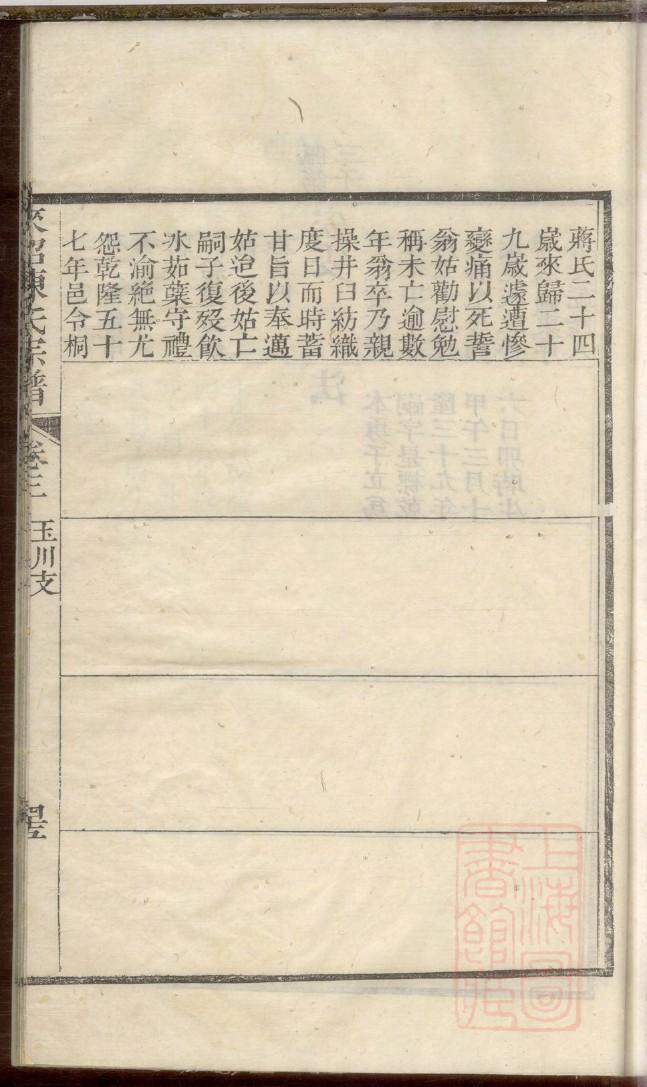 蔣氏二十四
歲來歸二十
九歲遽遭慘
變痛以死誓
翁姑勸慰勉
稱未亡逾數
年翁卒乃親
操井臼紡織
度日而時蓄
甘旨以奉邁
姑迨後姑亡
嗣子復殁飲
冰茹蘖守禮
不渝絶無尤
怨乾隆五十
七年邑令桐
陳氏宗譜
卷三
玉川支
上海圖書館藏